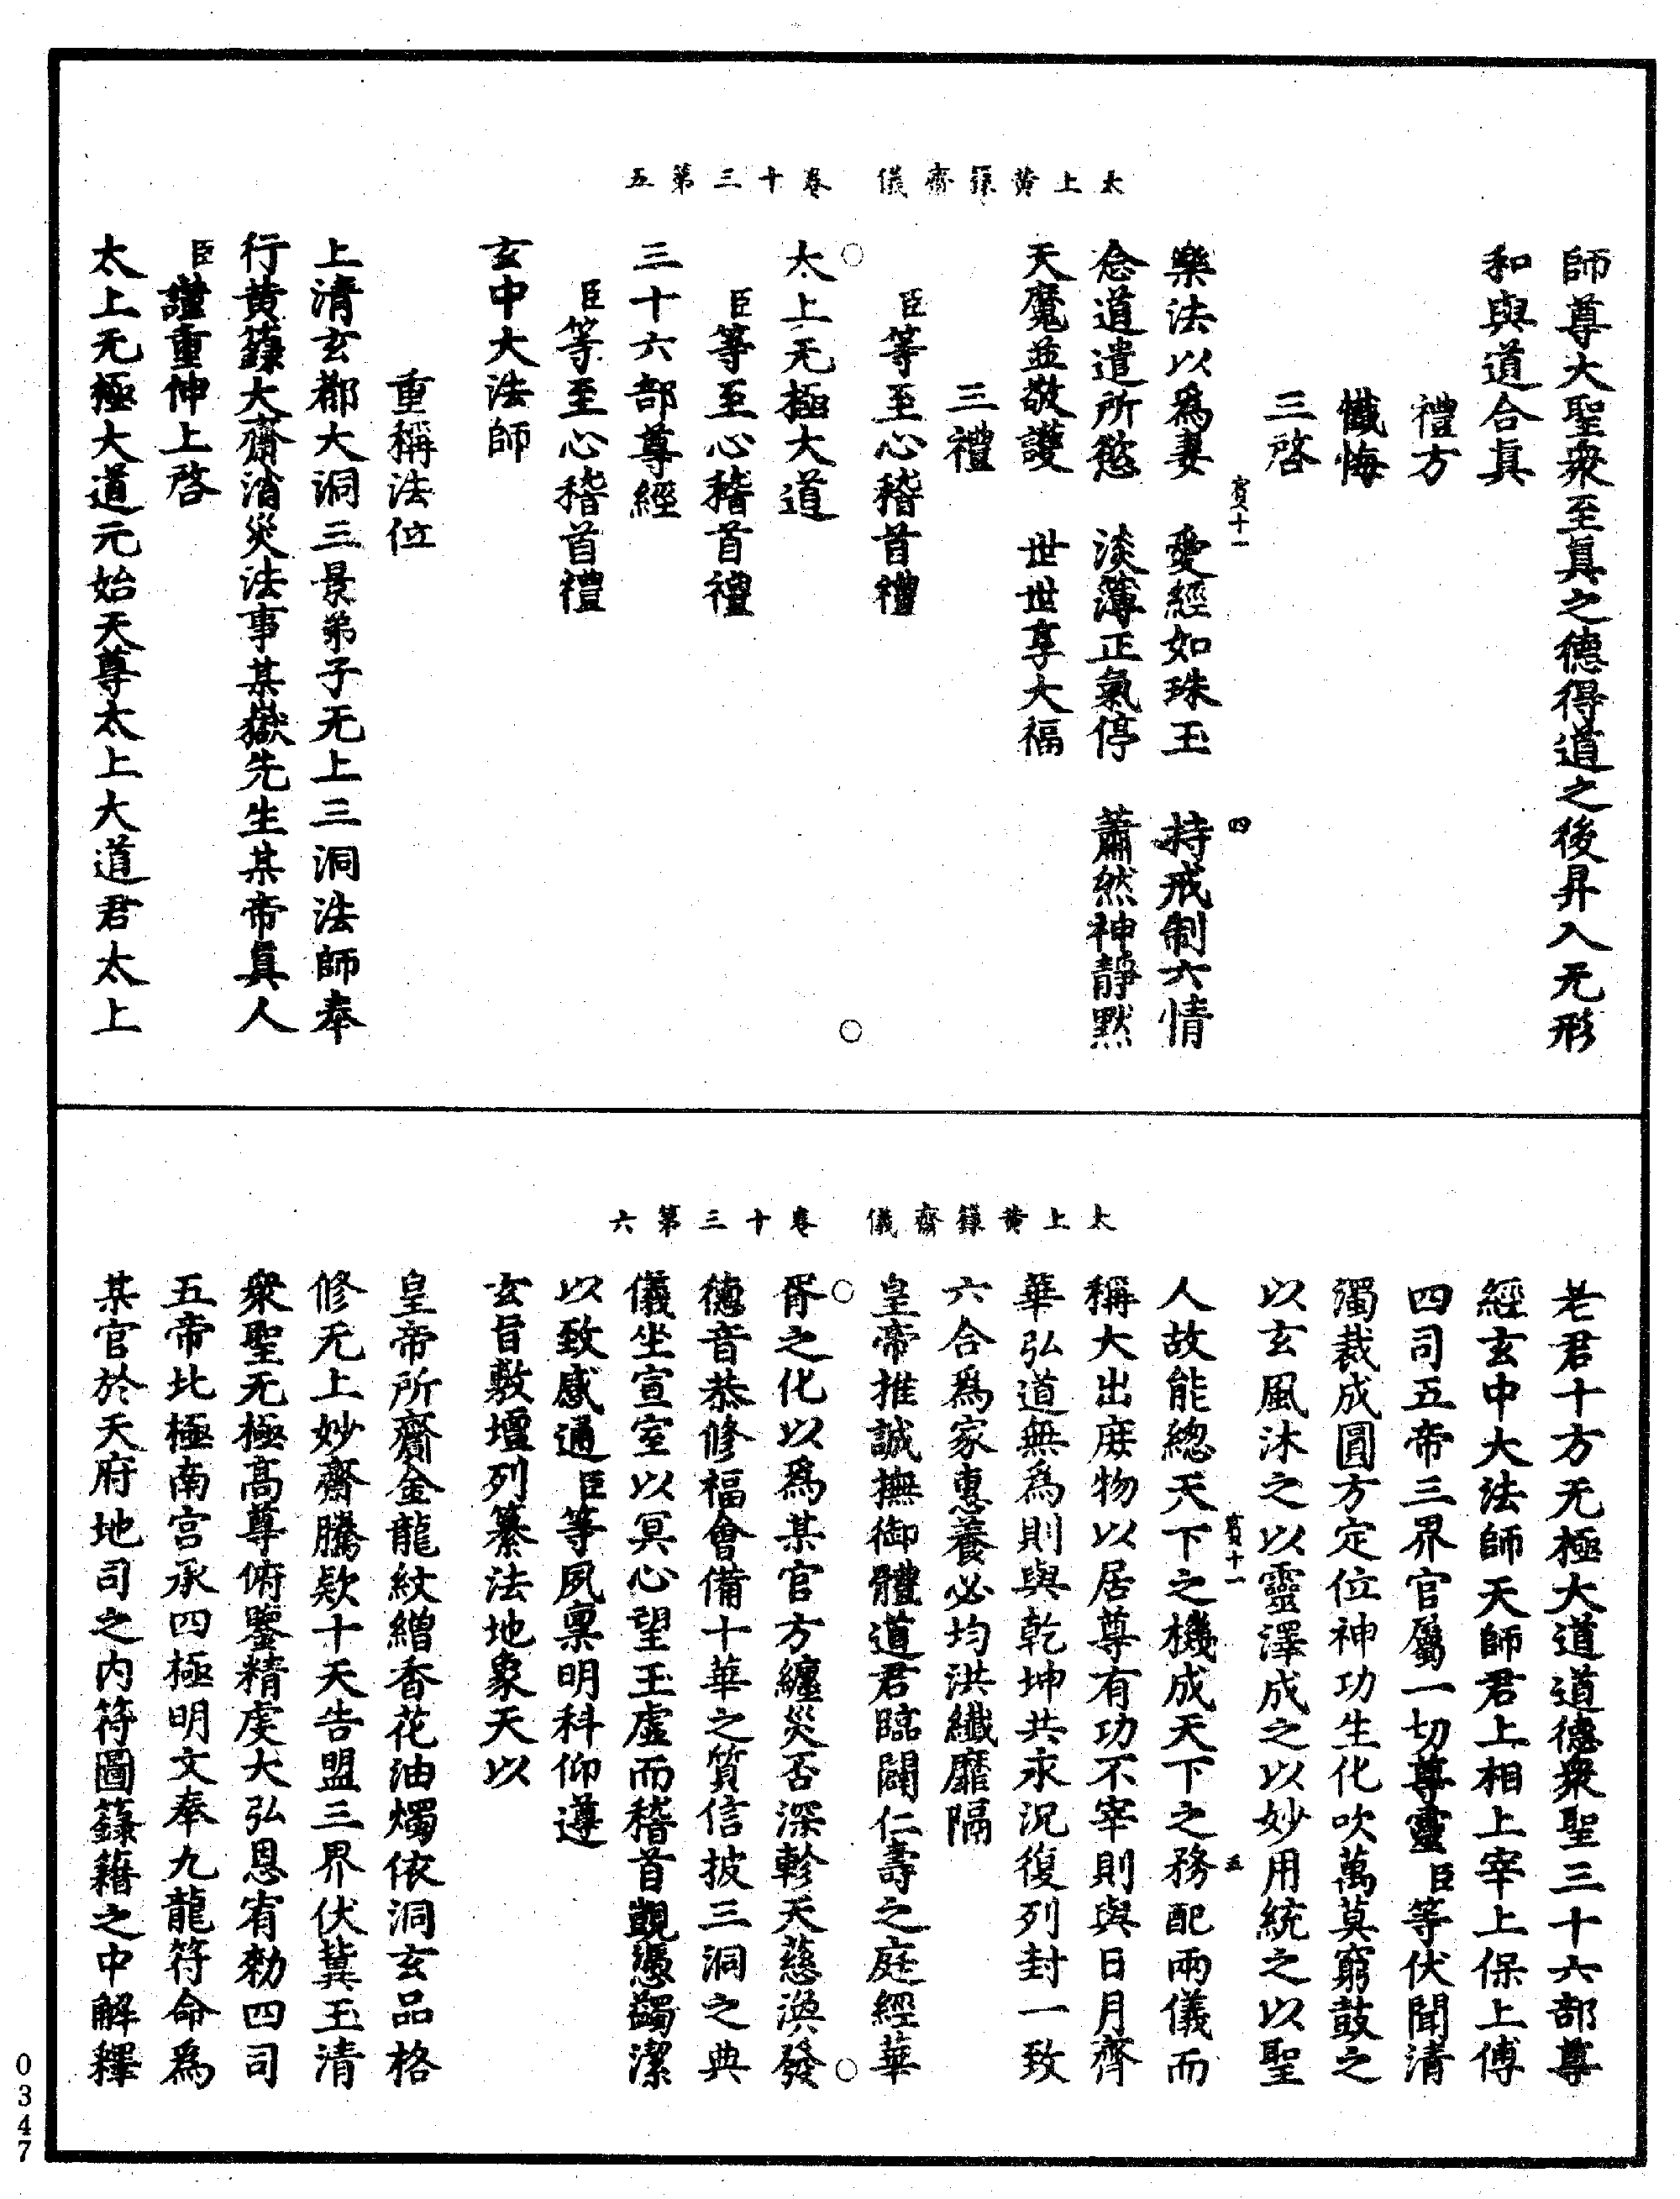 太上黃籙齋儀　卷十三第五
師尊大聖衆至真之德得道之後昇入无形
和與道合真
禮方
懺悔
三啓
賓十一　四
樂法以爲妻　愛經如珠玉　持戒制六情
念道遣所慾　淡薄正氣停　蕭然神靜默
天魔並敬護　世世享大福
三禮
臣等至心稽首禮
太上无極大道
臣等至心稽首禮
三十六部尊經
臣等至心稽首禮
玄中大法師
重稱法位
上清玄都大洞三景弟子无上三洞法師奉
行黃籙大齋消災法事某嶽先生某帝真人
臣謹重伸上啓
太上无極大道元始天尊太上大道君太上
太上黃籙齋儀　卷十三第六
老君十方无極大道道德衆聖三十六部尊
經玄中大法師天師君上相上宰上保上傅
四司五帝三界官屬一切尊靈臣等伏聞清
濁裁成圓方定位神功生化吹萬莫窮鼓之
以玄風沐之以靈澤成之以妙用統之以聖
賓十一　五
人故能總天下之機成天下之務配兩儀而
稱大出庶物以居尊有功不宰則與日月齊
華弘道無爲則與乾坤共永況復列封一致
六合爲家惠養必均洪纖靡隔
皇帝推誠撫御體道君臨闢仁壽之庭經華
胥之化以爲某官方纏災否深軫天慈渙發
德音恭修福會備十華之質信披三洞之典
儀坐宣室以冥心望玉虛而稽首覬憑蠲潔
以致感通臣等夙稟明科仰遵
玄旨敷壇列纂法地象天以
皇帝所齎金龍紋繒香花油燭依洞玄品格
修无上妙齋騰款十天告盟三界伏冀玉清
衆聖无極高尊俯鑒精虔大弘恩宥勑四司
五帝北極南宮承四極明文奉九龍符命爲
某官於天府地司之內符圖籙籍之中解釋
0347